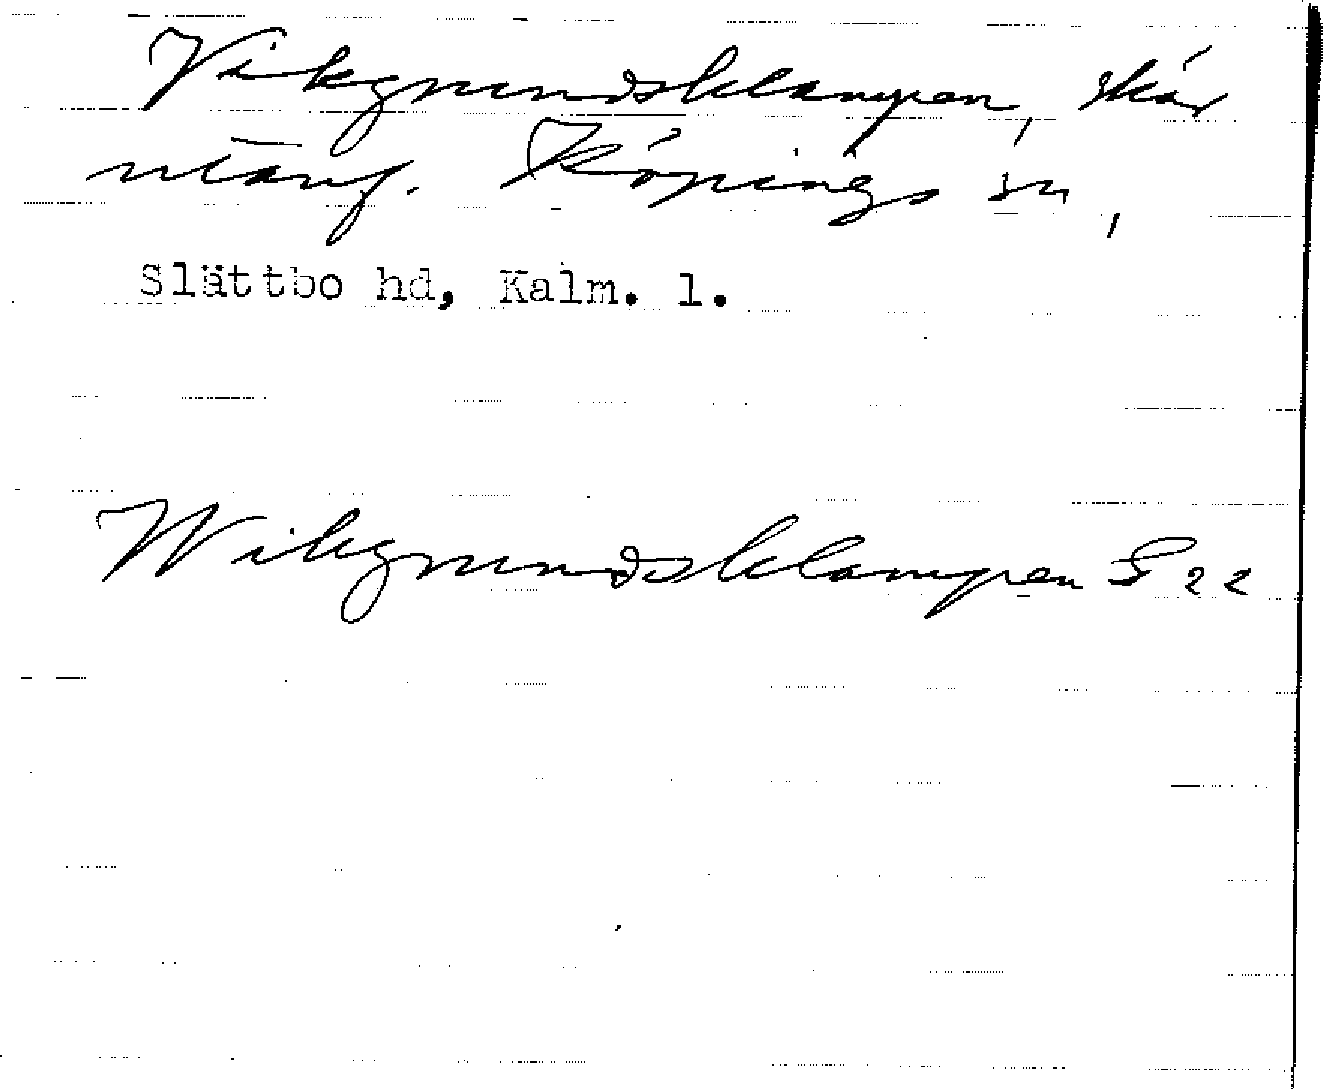 Vikgrundsklampen, skär
utanf. Köpings sn,
Slättbo hd, Kalm. l.
Wikgrundsklampen S 22